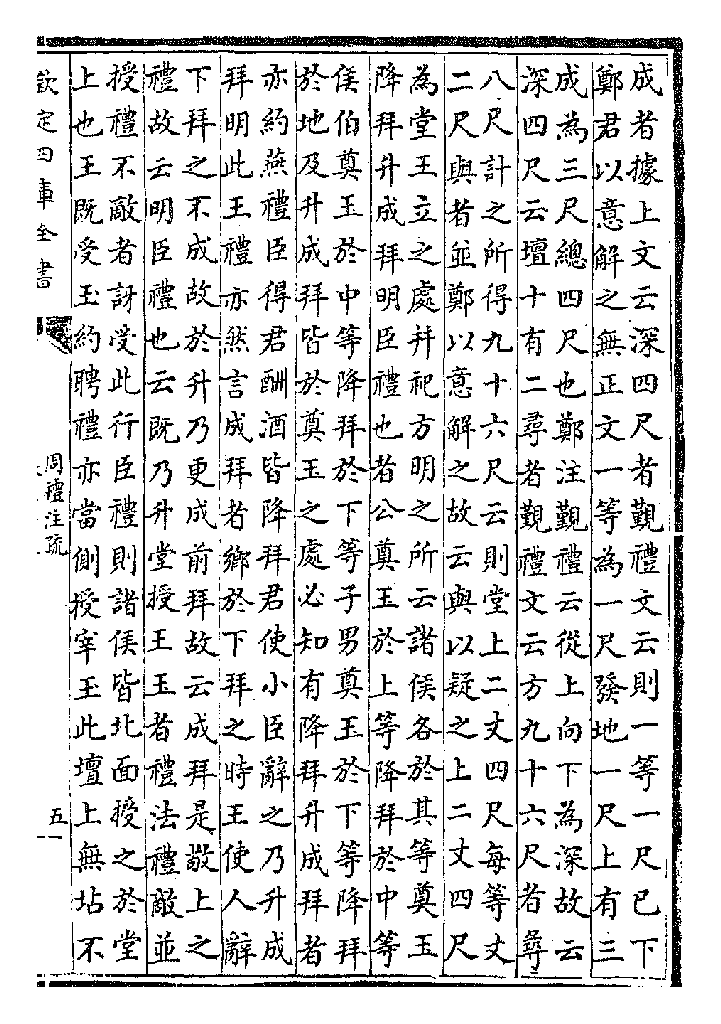 成者據上文云深四尺者覲禮文云則一等一尺已下
鄭君以意解之無正文一等為一尺發地一尺上有三
成為三尺總四尺也鄭注覲禮云從上向下為深故云
深四尺云壇十有二尋者覲禮文云方九十六尺者尋
八尺計之所得九十六尺云則堂上二丈四尺每等丈
二尺與者並鄭以意解之故云與以疑之上二丈四尺
為堂王立之處并祀方明之所云諸侯各於其等奠玉
降拜升成拜明臣禮也者公奠玉於上等降拜於中等
侯伯奠玉於中等降拜於下等子男奠玉於下等降拜
於地及升成拜皆於奠玉之處必知有降拜升成拜者
亦約燕禮臣得君酬酒皆降拜君使小臣辭之乃升成
拜明此王禮亦然言成拜者鄉於下拜之時王使人辭
下拜之不成故於升乃更成前拜故云成拜是敬上之
禮故云明臣禮也云既乃升堂授王玉者禮法禮敵並
授禮不敵者訝受此行臣禮則諸侯皆北面授之於堂
上也王既受玉約聘禮亦當側授宰玉此壇上無坫不
欽定四庫全書
周禮注疏